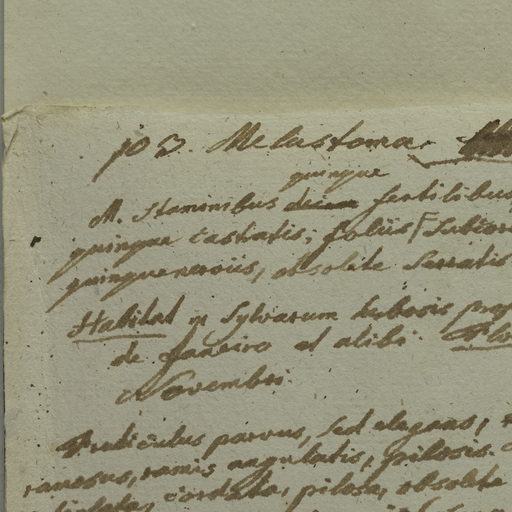 103. Melastoma.
quinque
M. Staminibus decem fertilibus,
quinque castratis; foliis subcor
quinquenerviis, obsolete serratis
Habitat in Sylvarum dubosis prop
de Janeiro et alibi. Flo
Novembri.
Fruticulus parvus, sed elegans;
ramosus, ramis angulatis, pilosis.
cordata, pilosa, obsolete